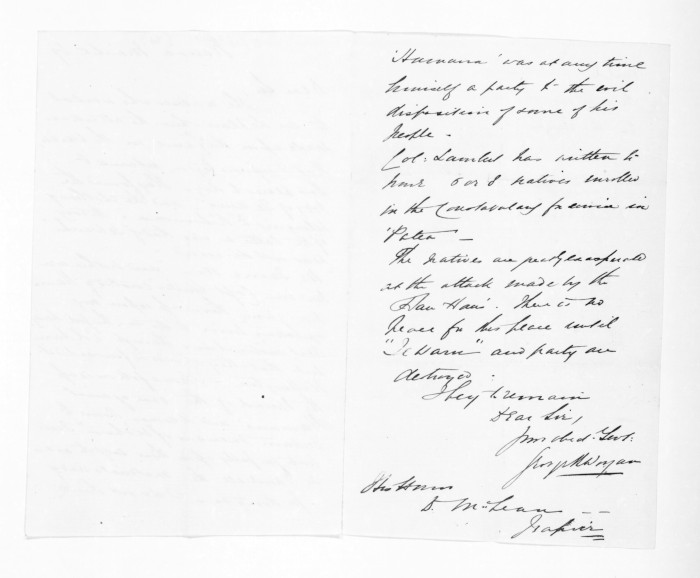 'Hamana' was at any time
himself a party to the evil
disposition of some of his
People -
Col: Lambert has written to
have 6 or 8 natives enrolled
in the Constabulary for service in
'Patea' —
The Natives are
at the attack made by the
Hau Hau'. There is no
Peace for this place until
"Te Waru" and party are
destroyed.
I beg to remain
Dear Sir,
Your obed: Servt:

His Honor
D. McLean —
Napier